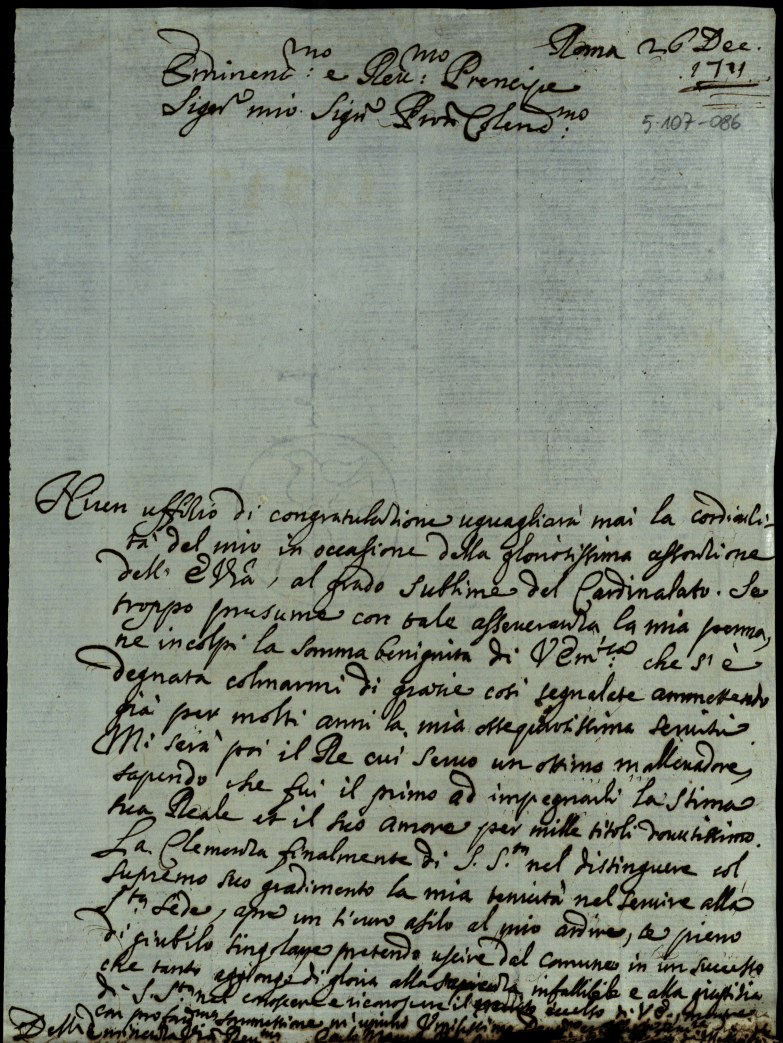 Roma 26 Dec.
1711
Eminent.mo e Reu.mo Prencipe
Sig.r mio Sig.r Pron Colend.mo
5-107-086
Niun uffitio di congratulatione uguagliarà mai la cordiali-
tà del mio in occasione della gloriosissima assontione
dell' E Vrã, al grado sublime del Cardinalato. Se
troppo presume con tale asseueranza la mia penna,
ne incolpi la somma benignità di VEm.za che si è
degnata colmarmi di gratie così segnalate ammettendo
già per molti anni la mia ossequiosissima seruitù
Mi serà poi il Re cui seruo un ottimo malleuadore,
sapendo che fui il primo ad impegnarli la stima
sua Reale et il suo amore per mille titoli douutissimo.
La Clemenza finalmente di S. S.tà nel distinguere col
supremo suo gradimento la mia tenuità nel seruire alla
S.ta Sede, apre un sicuro asilo al mio ardire, e pieno
di giubilo singolare pretendo uscire dal comune in un successo
che tanto aggionge di gloria alla sapienza infallibile e alla giustitia
di S. S.tà nel conoscere e riconoscere il merito eccelso di VE, mentre
con profond.ma sommissione m'inchino
Dell' Eminenza Vrã Reu.ma